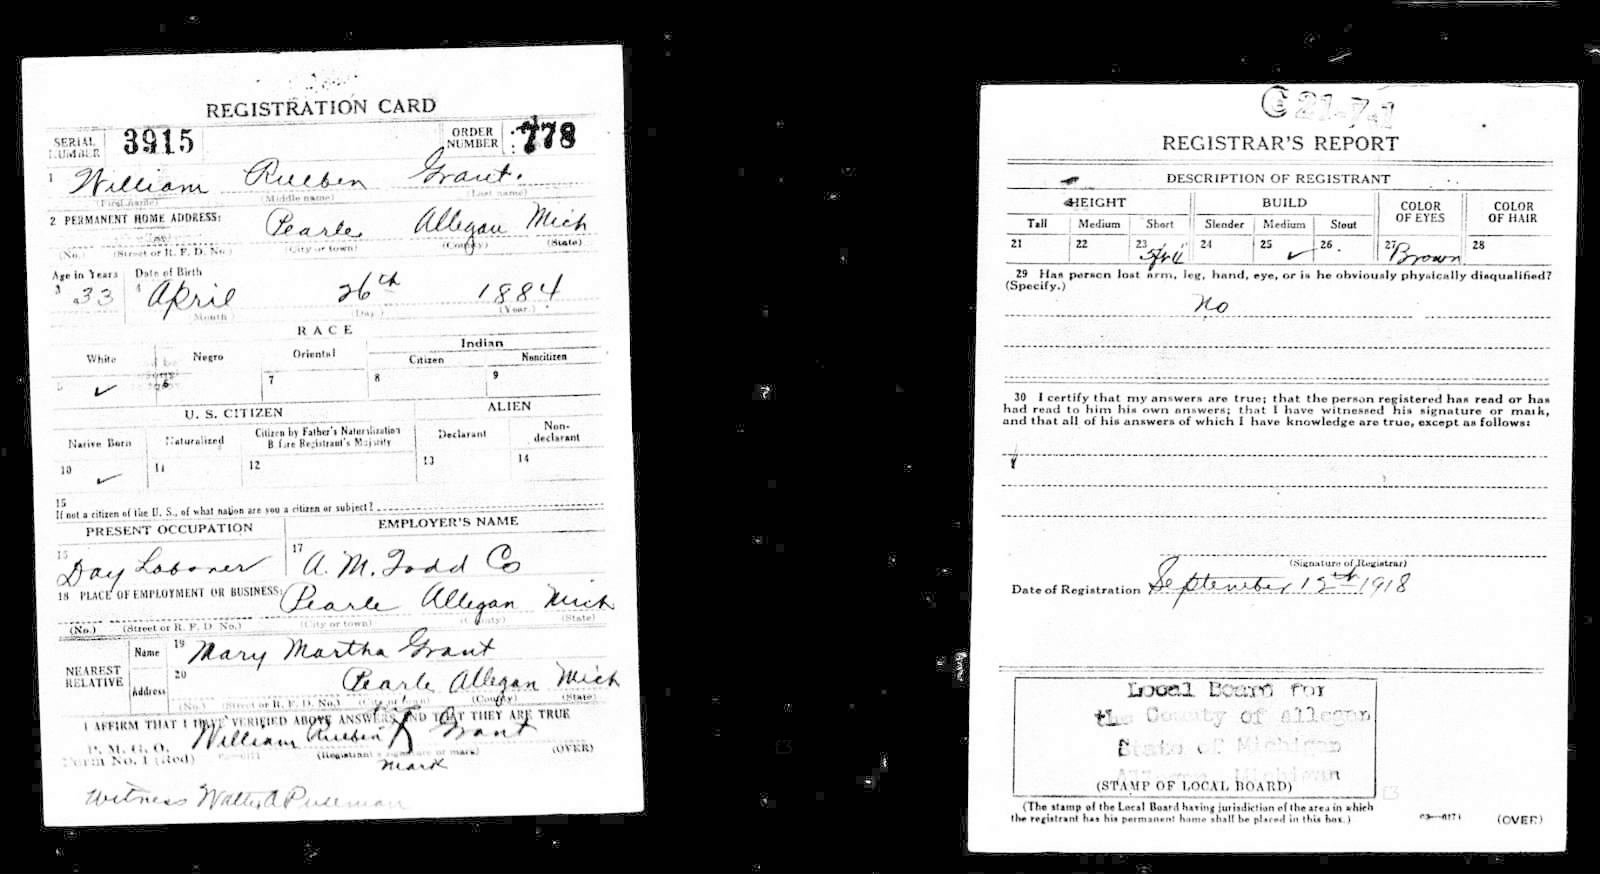 REGISTRATION CARD
SERIAL NUMBER 3915 ORDER NUMBER 778
1 William Rueben Grant.
(First name) (Middle name) (Last name)
2 PERMANENT HOME ADDRESS:
Pearle Allegan Mich
(No.) (Street or R. F. D. No.) (City or town) (County) (State)
Age in Years Date of Birth
3 33 4 April 26th 1884
(Month) (Day.) (Year.)
RACE
White Negro Oriental Indian
Citizen Noncitizen
5 ✓ 6 7 8 9
U. S. CITIZEN ALIEN
Native Born Naturalized Citizen by Father's Naturalization Before Registrant's Majority Declarant Non-declarant
10 ✓ 11 12 13 14
15
If not a citizen of the U. S., of what nation are you a citizen or subject?
PRESENT OCCUPATION EMPLOYER'S NAME
16 Day Laborer 17 A. M. Todd Co
18 PLACE OF EMPLOYMENT OR BUSINESS:
Pearle Allegan Mich
(No.) (Street or R. F. D. No.) (City or town) (County) (State)
NEAREST RELATIVE
Name 19 Mary Martha Grant
Address 20 Pearle Allegan Mich
(No.) (Street or R. F. D. No.) (City or town) (County) (State)
I AFFIRM THAT I HAVE VERIFIED ABOVE ANSWERS AND THAT THEY ARE TRUE
his
William Rueben X Grant
P. M. G. O.
Form No. 1 (Red) (Registrant's signature or mark) (OVER)
mark
Witness
C 21-7-1
REGISTRAR'S REPORT
DESCRIPTION OF REGISTRANT
HEIGHT BUILD COLOR OF EYES COLOR OF HAIR
Tall Medium Short Slender Medium Stout
21 22 23 24 25 ✓ 26 27 Brown 28
29 Has person lost arm, leg, hand, eye, or is he obviously physically disqualified?
(Specify.)
No
30 I certify that my answers are true; that the person registered has read or has
had read to him his own answers; that I have witnessed his signature or mark,
and that all of his answers of which I have knowledge are true, except as follows:
(Signature of Registrar)
Date of Registration September 12th 1918
Local Board for
the County of Allegan
State of Michigan
Allegan, Michigan
(STAMP OF LOCAL BOARD)
(The stamp of the Local Board having jurisdiction of the area in which
the registrant has his permanent home shall be placed in this box.)
03—6171 (OVER)